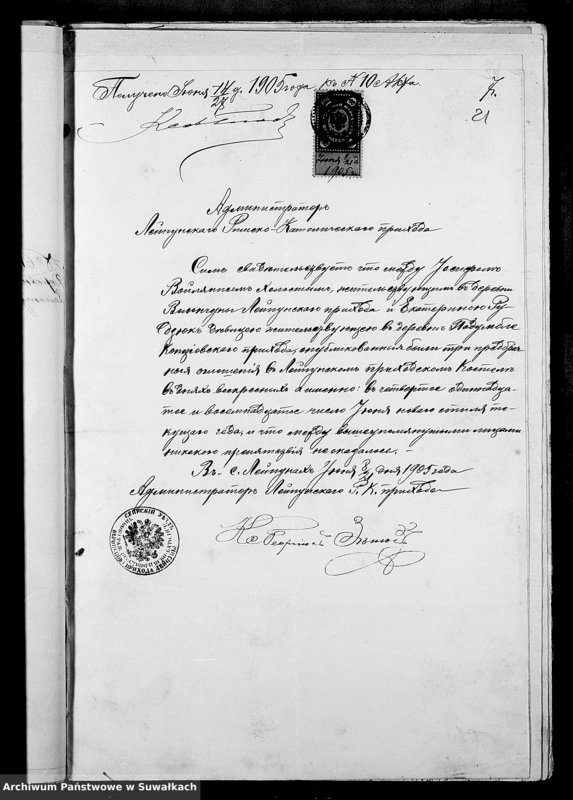 Получено Іюня 14/27 д. 1905 года къ № 10 акта.
7.
21
Іюня 8/21 д
1905 г.
Администраторъ
Лейпунскаго Римско-Католическаго прихода
Симъ свидѣтельствуетъ что между Іосифомъ
холостымъ, жительствующимъ въ деревни
Лейпунскаго прихода и Екатериною Ру-
дзюкъ дѣвицею жительствующею въ деревни
Копціовскаго прихода, опубликованныя были три предбрач-
ныя оглашенія въ Лейпунскомъ приходскомъ Костелѣ
въ дняхъ воскресныхъ а именно: въ четвертое одинадца-
тое и восемнадцатое число Іюня новаго стиля те-
кущаго года, и что между вышеупомянутыми лицами
никакого препятствія не оказалось. –
Въ с. Лейпунахъ Іюня 8/21 дня 1905 года
Администраторъ Лейпунскаго Р. К. прихода
Кс. Георгій
Archiwum Państwowe w Suwałkach